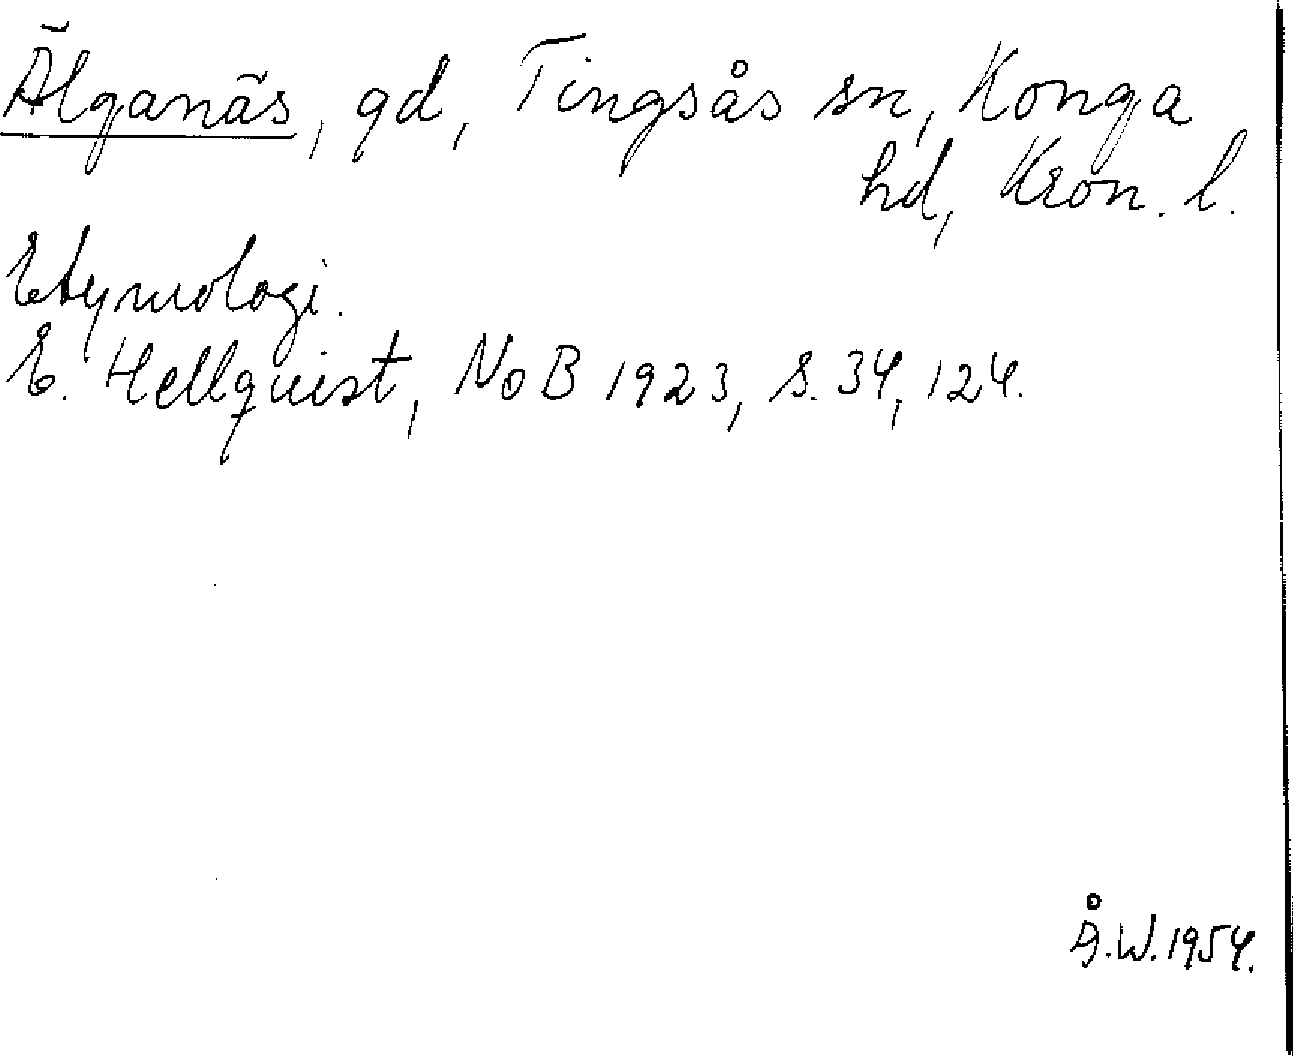 Älganäs, gd, Tingsås sn, Konga
hd, Kron. l.
Etymologi.
E. Hellquist, NoB 1923, s. 34, 124.
Å.W. 1954.